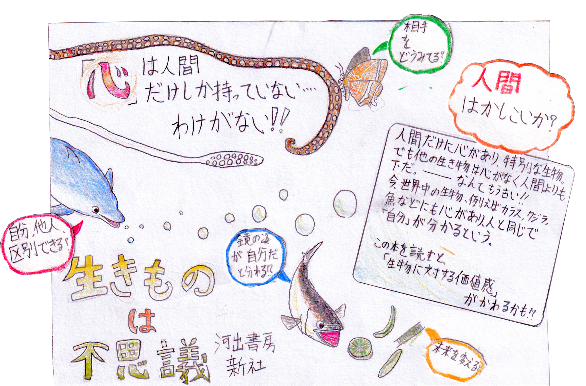 「心」は人間
だけしか持っていない…
わけがない!!
相手
を
どうみてる?
人間
はかしこいか?
人間だけに心があり、特別な生物。
でも他の生き物は心がなく人間よりも
下だ。――なんてもう古い!!
今、世界中の生物、例えばカラス、クジラ、
魚などにも心があり人と同じで
「自分」が分かるという。
この本を読むと、
「生物に対する価値感」
がかわるかも!!
自分、他人、
区別できる!
鏡の姿
が自分だ
と分かる!?
生きもの
は
不思議
河出書房
新社
未来を変える